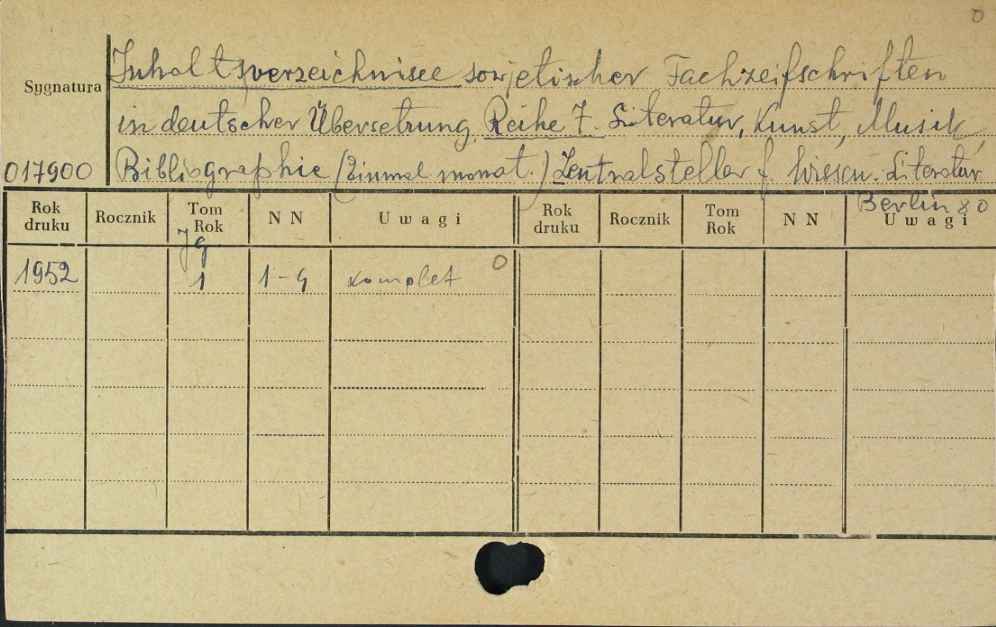 0
Inhaltsverzeichnisee sowjetischer Fachzeifschriften
Sygnatura
in deutscher Übersetzung. Reihe 7. Literatur, Kunst, Musik,
017900 Bibliographie (Einmal monat.) Zentralstelle f. Wissen. Literatur
Berlin 80
Rok druku Rocznik Tom Rok N N Uwagi Rok druku Rocznik Tom Rok N N Uwagi
Jg
1952 1 1-9 komplet 0